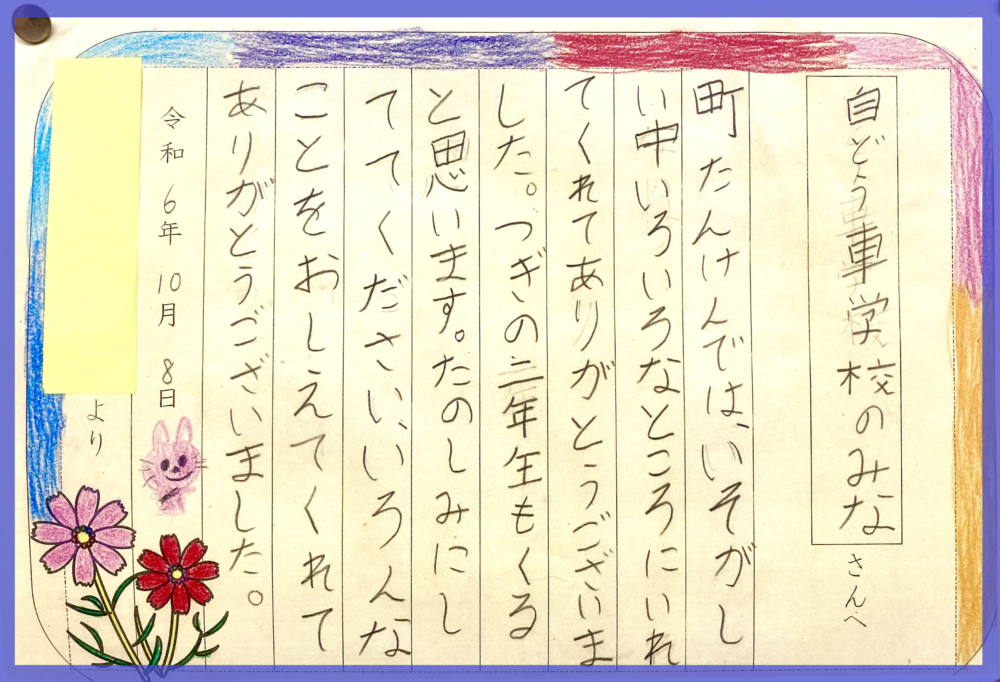 自どう車学校のみな
さんへ
町たんけんでは、いそがし
い中いろいろなところにいれ
てくれてありがとうございま
した。つぎの二年生もくる
と思います。たのしみにし
ててください、いろんな
ことをおしえてくれて
ありがとうございました。
令和6年10月8日
より